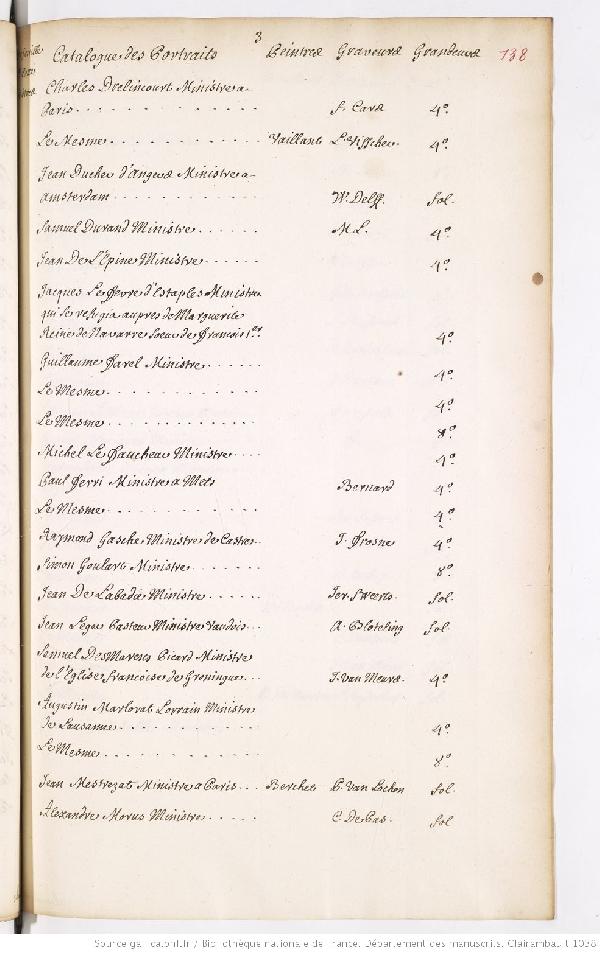 3
Catalogue des Portraits Peintre Graveure Grandeure 138
Charles Drelincourt Ministre a
Paris. . . . . . . . . . . . . J. Care 4º
Le Mesme. . . . . . . . . . . Vaillant L. Visscher 4º
Jean Ducher d'Angere Ministre a
amsterdam . . . . . . . . . . W. Delff. fol.
Samuel Durand Ministre . . . . . M. L. 4º
Jean De L'Epine Ministre . . . . . 4º
Jacques Le Fevre d'Estaples Ministre
qui se refugia aupres de Marguerite
Reine de Navarre soeur de Francois 1er 4º
Guillaume Farel Ministre . . . . . 4º
Le Mesme . . . . . . . . . . . 4º
Le Mesme . . . . . . . . . . . 8º
Michel Le Faucheur Ministre . . . 4º
Paul Ferri Ministre a Mets Bernard 4º
Le Mesme . . . . . . . . . . . 4º
Raymond Gasche Ministre de Castres . . J. Frosne 4º
Simon Goulart Ministre . . . . . . 8º
Jean De Labadie Ministre . . . . . Jer. Sweerts. fol.
Jean Leger Pasteur Ministre Vaudois . . . A. Bloteling fol.
Samuel Des Marests Picard Ministre
de l'Eglise francoise de Groningue . . . J. Van Meure 4º
Augustin Marlorat Lorrain Ministre
de Lausanne . . . . . . . . . . 4º
Le Mesme . . . . . . . . . . . 8º
Jean Mestrezat Ministre a Paris . . . Berchet P. Van Lochon fol.
Alexandre Morus Ministre . . . . . C. De Pas. fol
Source gallica.bnf.fr / Bibliothèque nationale de France. Département des manuscrits. Clairambault 1038